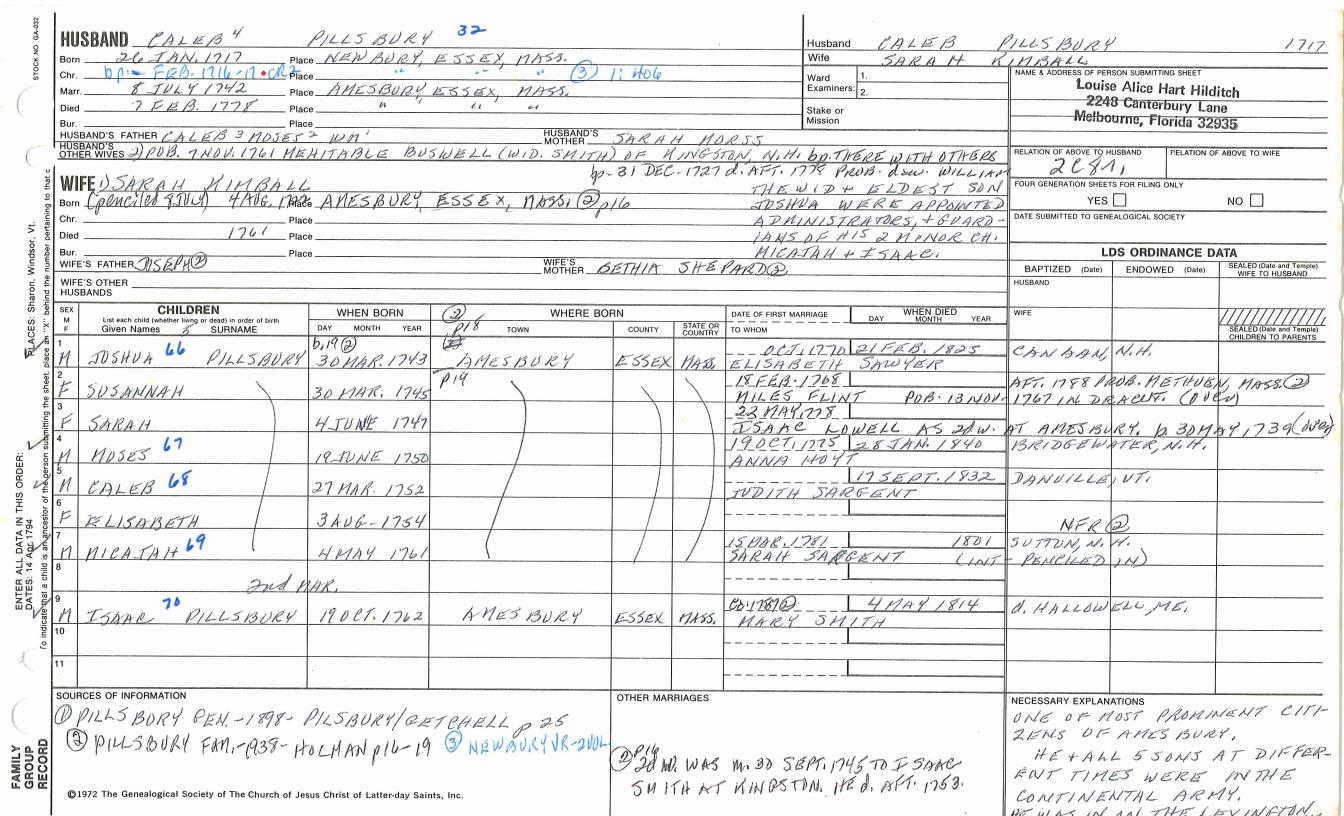 STOCK NO. GA-032
HUSBAND CALEB 4 PILLSBURY 32
Born 26 JAN. 1717 Place NEWBURY, ESSEX, MASS.
Chr. bp- FEB. 1716-17 · CR2 Place " " " ③ 1:406
Marr. 8 JULY 1742 Place AMESBURY, ESSEX, MASS.
Died 7 FEB. 1778 Place " " "
Bur. Place
HUSBAND'S FATHER CALEB 3 MOSES 2 WM 1 HUSBAND'S MOTHER SARAH MORSS
HUSBAND'S OTHER WIVES 2) PUB. 7 NOV. 1761 MEHITABLE BUSWELL (WID. SMITH) OF KINGSTON, N.H. bp. THERE WITH OTHERS
bp-31 DEC-1727 d. AFT. 1779 PROB. dsw. WILLIAM
THE WID + ELDEST SON
JOSHUA WERE APPOINTED
ADMINISTRATORS, + GUARD-
IANS OF HIS 2 MINOR CH.
MICAJAH + ISAAC.
Husband CALEB PILLSBURY 1717
Wife SARAH KIMBALL
Ward Examiners: 1.
2.
Stake or Mission
NAME & ADDRESS OF PERSON SUBMITTING SHEET
Louise Alice Hart Hilditch
2248 Canterbury Lane
Melbourne, Florida 32935
RELATION OF ABOVE TO HUSBAND RELATION OF ABOVE TO WIFE
2C8R,
FOUR GENERATION SHEETS FOR FILING ONLY
YES NO
DATE SUBMITTED TO GENEALOGICAL SOCIETY
LDS ORDINANCE DATA
BAPTIZED (Date) ENDOWED (Date) SEALED (Date and Temple) WIFE TO HUSBAND
HUSBAND
WIFE
SEALED (Date and Temple) CHILDREN TO PARENTS
WIFE 1) SARAH KIMBALL
Born (penciled 9 JULY) 4 AUG. 1722 Place AMESBURY, ESSEX, MASS. ② p16
Chr. Place
Died 1761 Place
Bur. Place
WIFE'S FATHER JOSEPH ② WIFE'S MOTHER BETHIA SHEPARD ②
WIFE'S OTHER HUSBANDS
SEX M F CHILDREN List each child (whether living or dead) in order of birth Given Names 5 SURNAME WHEN BORN DAY MONTH YEAR ② p18 WHERE BORN TOWN COUNTY STATE OR COUNTRY DATE OF FIRST MARRIAGE TO WHOM WHEN DIED DAY MONTH YEAR
1 M JOSHUA 66 PILLSBURY b,19 ② 30 MAR. 1743 AMESBURY ESSEX MASS. OCT. 1770 21 FEB. 1825 CANAAN, N.H.
ELISABETH SAWYER
2 F SUSANNAH 30 MAR. 1745 p19 18 FEB. 1768 AFT. 1788 PROB. METHUEN, MASS. ②
MILES FLINT PUB. 13 NOV- 1767 IN DRACUT. (OVER)
3 F SARAH 4 JUNE 1747 22 MAY, 1778
ISAAC LOWELL AS 2d w. AT AMESBURY. b. 30 MAY, 1739 (over)
4 M MOSES 67 19 JUNE 1750 19 OCT. 1775 28 JAN. 1840 BRIDGEWATER, N.H.
ANNA HOYT
5 M CALEB 68 27 MAR. 1752 17 SEPT. 1832 DANVILLE, VT.
JUDITH SARGENT
6 F ELISABETH 3 AUG- 1754 NFR ②
7 M MICAJAH 69 4 MAY 1761 15 MAR. 1781 1801 SUTTON, N.H.
SARAH SARGENT (INT - PENCILED IN)
8
2nd MAR.
9 M ISAAC 70 PILLSBURY 19 OCT. 1762 AMESBURY ESSEX MASS. ② 4 MAY 1814 d. HALLOWELL, ME.
MARY SMITH
10
11
PLACES: Sharon, Windsor, Vt.
To indicate that a child is an ancestor of the person submitting the sheet, place an "X" behind the number pertaining to that c
ENTER ALL DATA IN THIS ORDER:
DATES: 14 Apr 1794
FAMILY GROUP RECORD
SOURCES OF INFORMATION
① PILLSBURY GEN.-1898- PILSBURY/GETCHELL p 25
② PILLSBURY FAM.-1938- HOLMAN p16-19 ③ NEWBURY VR-2VOL
©1972 The Genealogical Society of The Church of Jesus Christ of Latter-day Saints, Inc.
OTHER MARRIAGES
② p19
2d W. WAS m. 30 SEPT. 1745 TO ISAAC
SMITH AT KINGSTON. HE d. AFT. 1753.
NECESSARY EXPLANATIONS
ONE OF MOST PROMINENT CITI-
ZENS OF AMESBURY.
HE + ALL 5 SONS AT DIFFER-
ENT TIMES WERE IN THE
CONTINENTAL ARMY.
HE WAS IN ON THE LEXINGTON